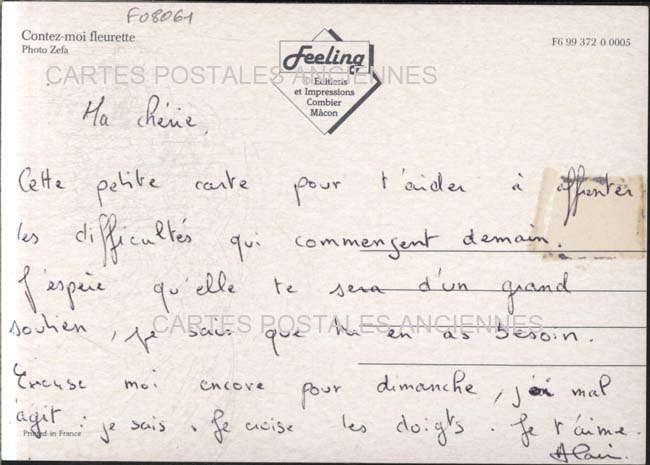 F08061
Contez-moi fleurette
Photo Zefa
Feeling
Cr
© Editions
et Impressions
Combier
Mâcon
F6 99 372 0 0005
CARTES POSTALES ANCIENNES
Ma chérie,
Cette petite carte pour t'aider à affronter
les difficultés qui commençent demain.
J'espère qu'elle te sera d'un grand
soutien, je sais que tu en as besoin.
CARTES POSTALES ANCIENNES
Excuse moi encore pour dimanche, j'ai mal
agit : je sais. Je croise les doigts. Je t'aime.
Printed in France
Alain